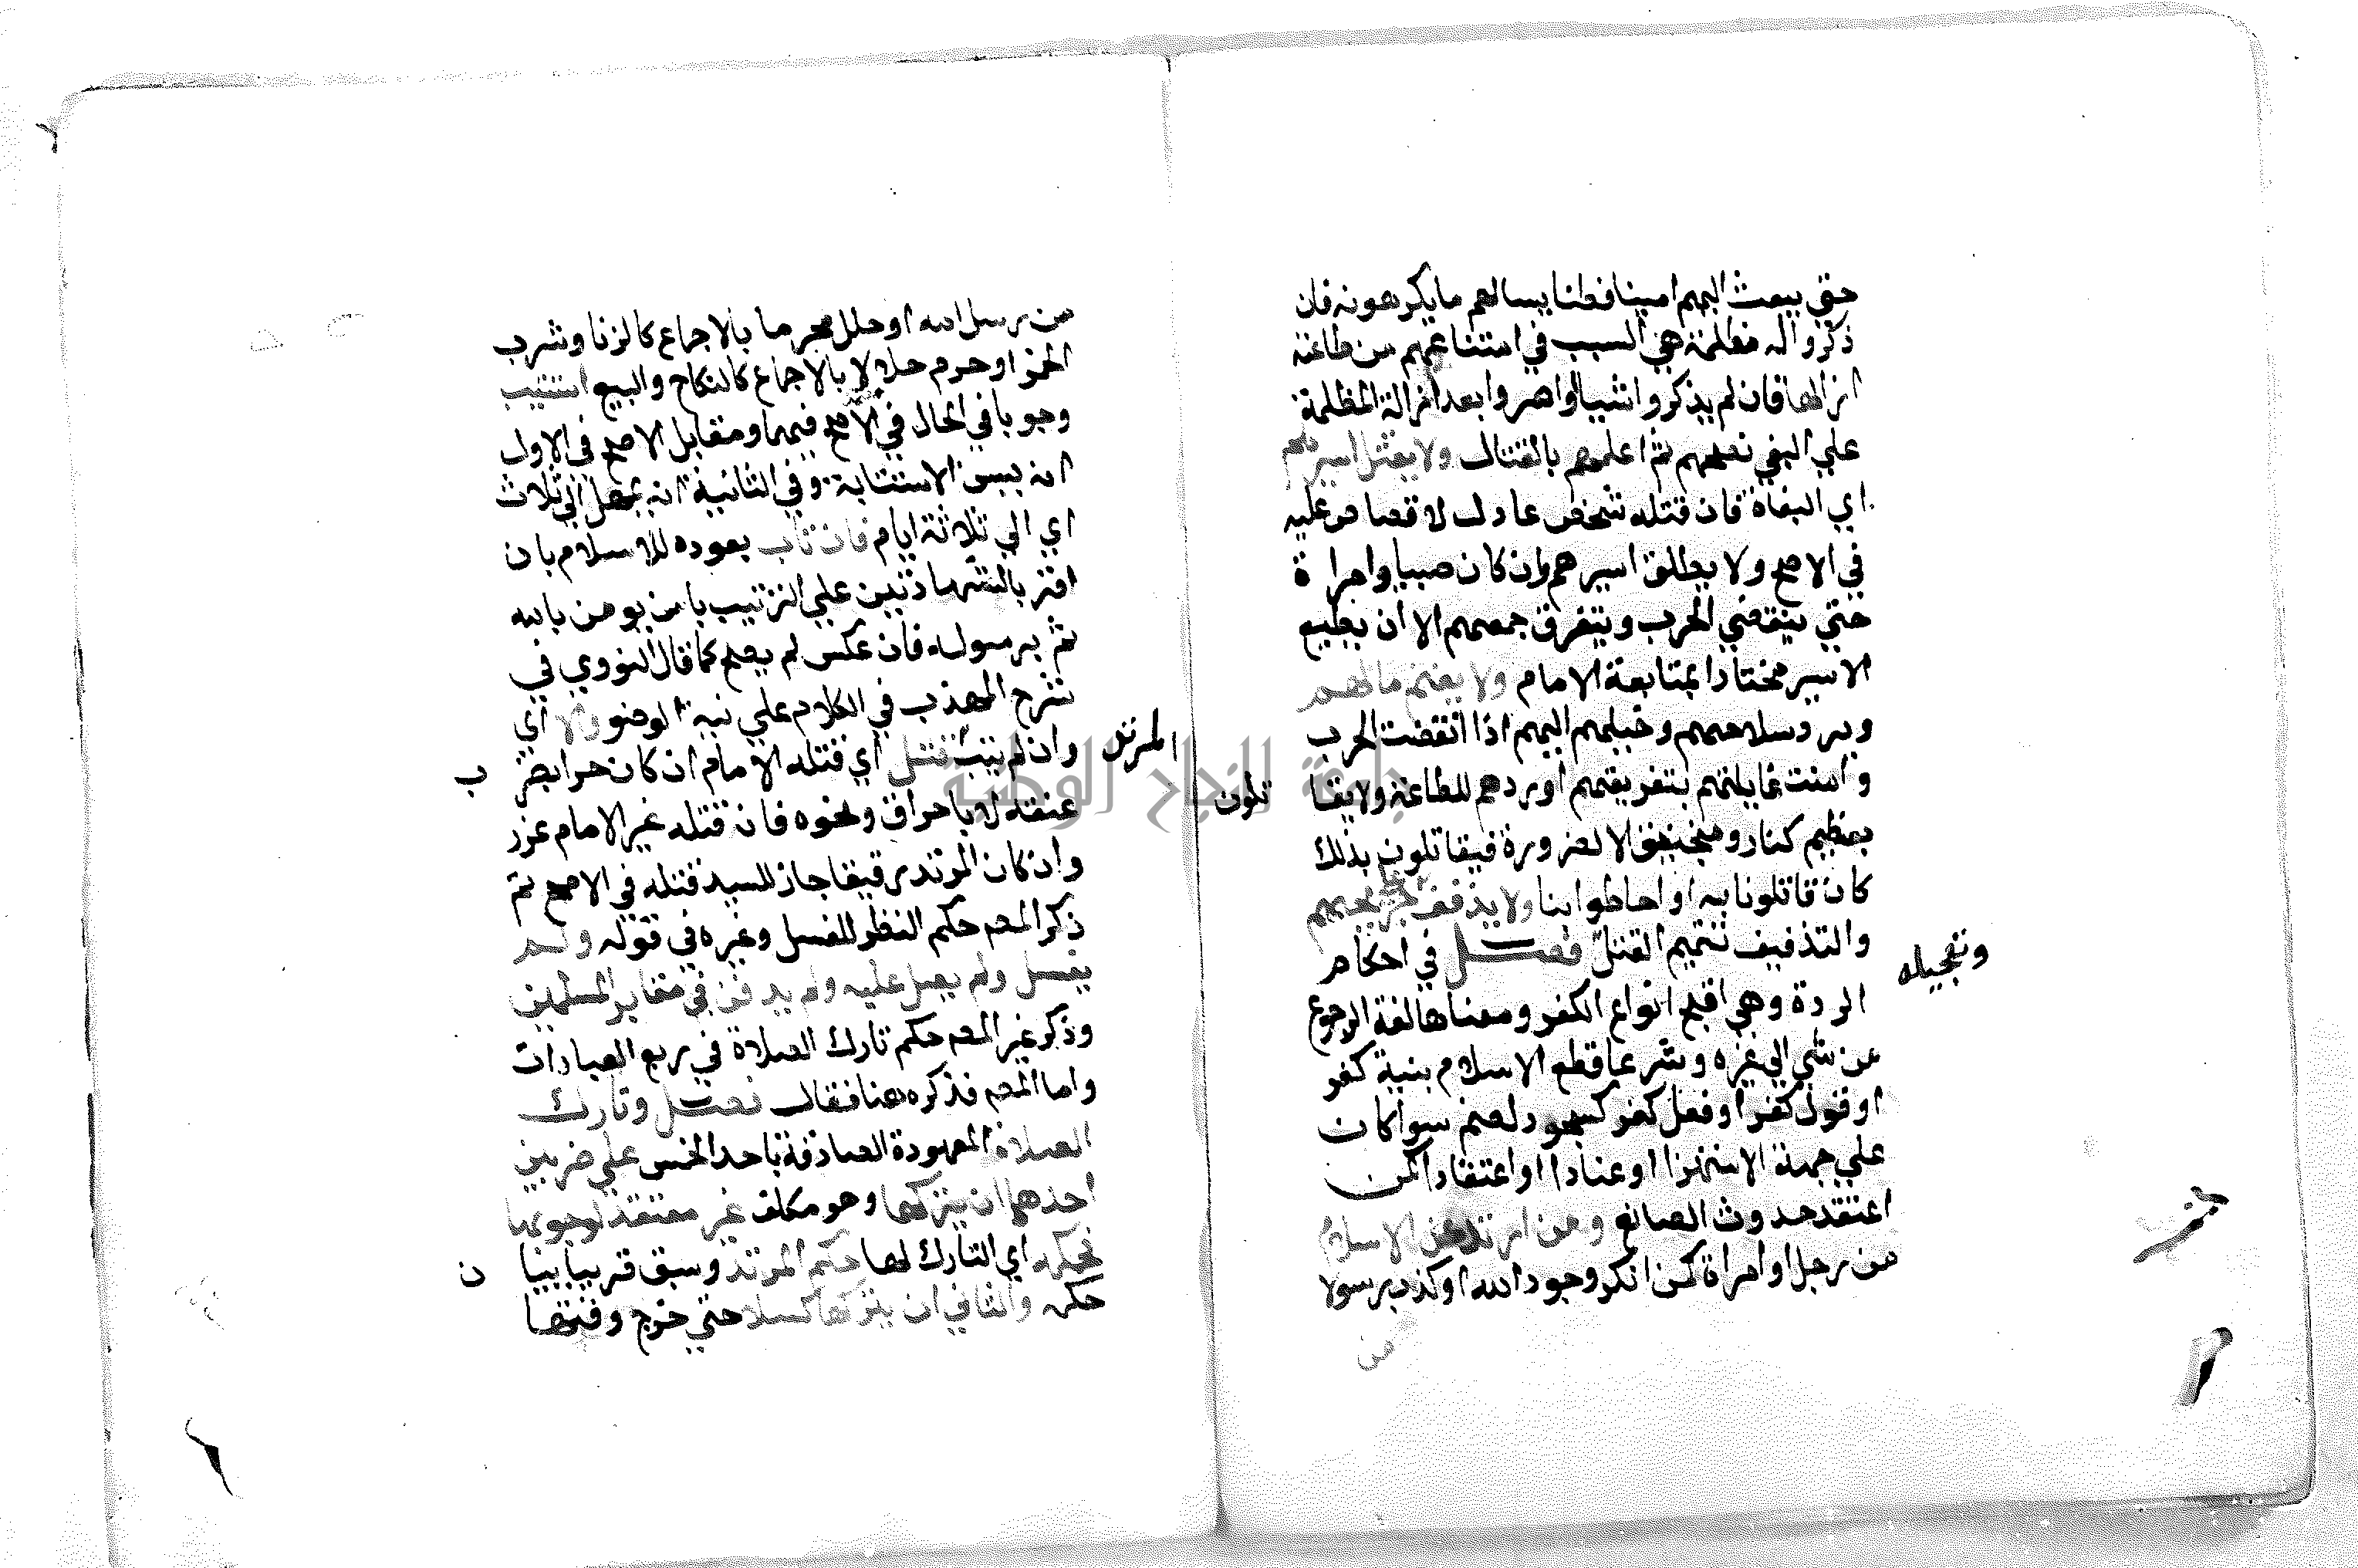 حتى يبعث اليهم امينا فطنا يسالهم ما يكرهونه فان
ذكروا له مظلمة هي السبب في امتناعهم من طاعته
ازالها فان لم يذكروا شيا او اصروا بعد ازالة المظلمة
علي البغي نصحهم ثم اعلمهم بالقتال ولا يقتل اسيرهم
اي البغاة فان قتله شخص عادل لا قصاص عليه
في الاصح ولا يطلق اسيرهم وان كان صبيا وامراة
حتي ينقضي الحرب ويتفرق جمعهم الا ان يطيع
الاسير مختارا بمتابعة الامام ولا يغنم مالهم
ويرد سلاحهم وخيلهم اليهم اذا انقضت الحرب
وامنت غايلتهم بتفريقهم او ردهم للطاعة ولا يقا
تلون
بعظيم كنار ومنجنيق الا لضرورة فيقاتلون بذلك
كان قاتلونا به او احاطوا بنا ولا يذفف على جريحهم
والتذفيف تتميم القتل فصل في احكام
وتعجيله
الردة وهي اقبح انواع الكفر ومعناها لغة الرجوع
عن شي الي غيره وشرعا قطع الاسلام بنية كفر
او قول كفر او فعل كفر كسجود لصنم سوا كان
علي جهة الاستهزا او عنادا او اعتقادا كمن
اعتقد حدوث الصانع ومن ارتد عن الاسلام
من رجل او امراة كمن انكر وجود الله او كذب رسولا
من
من رسل الله او حلل محرما بالاجماع كالزنا وشرب
الخمر او حرم حلالا بالاجماع كالنكاح والبيع استتيب
وجوبا في الحال في الاصح فيهما ومقابل الاصح في الاول
انه يسن الاستتابة وفي الثانية انه يمهل الي ثلاث
اي الي ثلاثة ايام فان تاب بعوده للاسلام بان
اقر بالشهادتين علي الترتيب بان يومن بالله
ثم برسوله فان عكس لم يصح كما قال النووي في
شرح المهذب في الكلام علي نية الوضو والا اي
المرتد
وان لم يتب قتل اي قتله الامام ان كان حرا بضر
ب
عنقه لا باحراق ونحوه فان قتله غير الامام عزر
وان كان المرتد رقيقا جاز للسيد قتله في الاصح ثم
ذكر المص حكم النظر للغسل وغيره في قوله ولم
يغسل ولم يصل عليه ولم يدفن في مقابر المسلمين
وذكر غير المص حكم تارك الصلاة في ربع العبادات
واما المص فذكره هنا فقال فصل وتارك
الصلاة المعهودة الصادقة باحد الخمس علي ضربين
احدهما ان يتركها وهو مكلف غير معتقد لوجوبها
فحكمه اي التارك لها حكم المرتد وسبق قريبا بيا
ن
حكمه والثاني ان يتركها كسلا حتي خرج وقتها
جامعة النجاح الوطنية